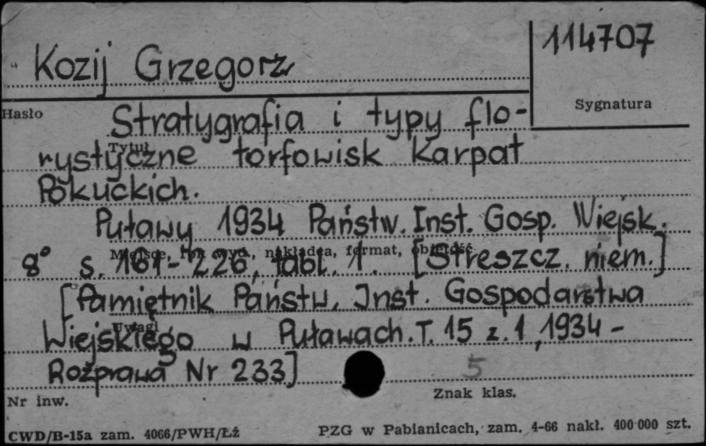 114707
Kozij Grzegorz
Hasło
Sygnatura
Stratygrafia i typy flo-
Tytuł
rystyczne torfowisk Karpat
Pokuckich.
Puławy 1934 Państw. Inst. Gosp. Wiejsk.
Miejsce, rok wyd., nakładca, format, objętość
8° s. 161-226, tabl. 1. [Streszcz. niem.]
[Pamiętnik Państw. Inst. Gospodarstwa
Uwagi
Wiejskiego w Puławach. T. 15 z. 1, 1934 -
Rozprawa Nr 233]
5
Nr inw.
Znak klas.
CWD/B-15a zam. 4066/PWH/Łż
PZG w Pabianicach, zam. 4-66 nakł. 400 000 szt.